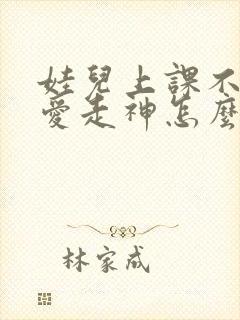 娃兒上課不
愛走神怎麼
林家成